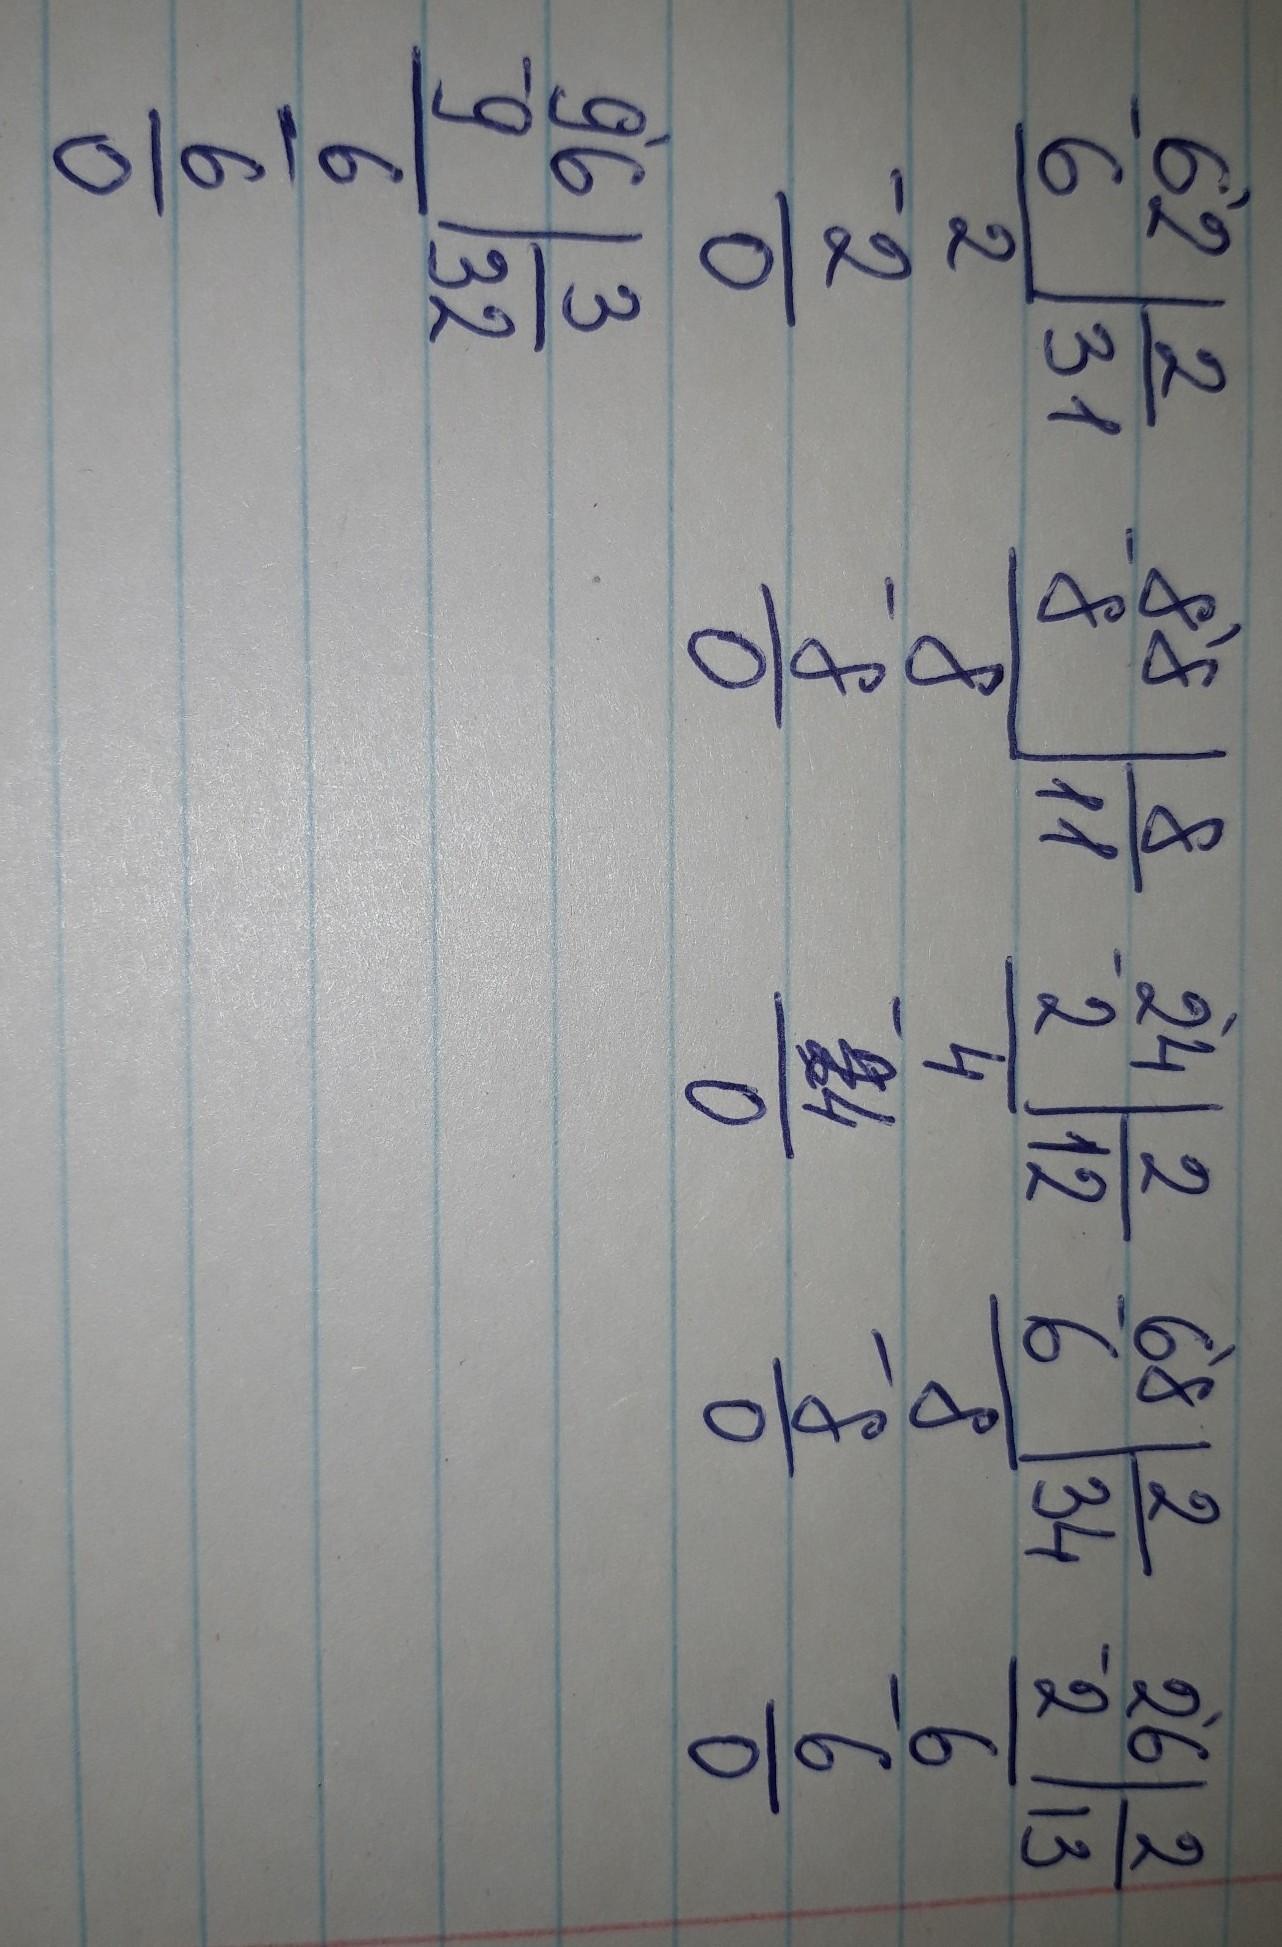 62 | 2 88 | 8 24 | 2 68 | 2 26 | 2
-6 | 31 -8 | 11 -2 | 12 -6 | 34 -2 | 13
2 8 4 8 6
-2 -8 -4 -8 -6
0 0 0 0 0
96 | 3
-9 | 32
6
-6
0